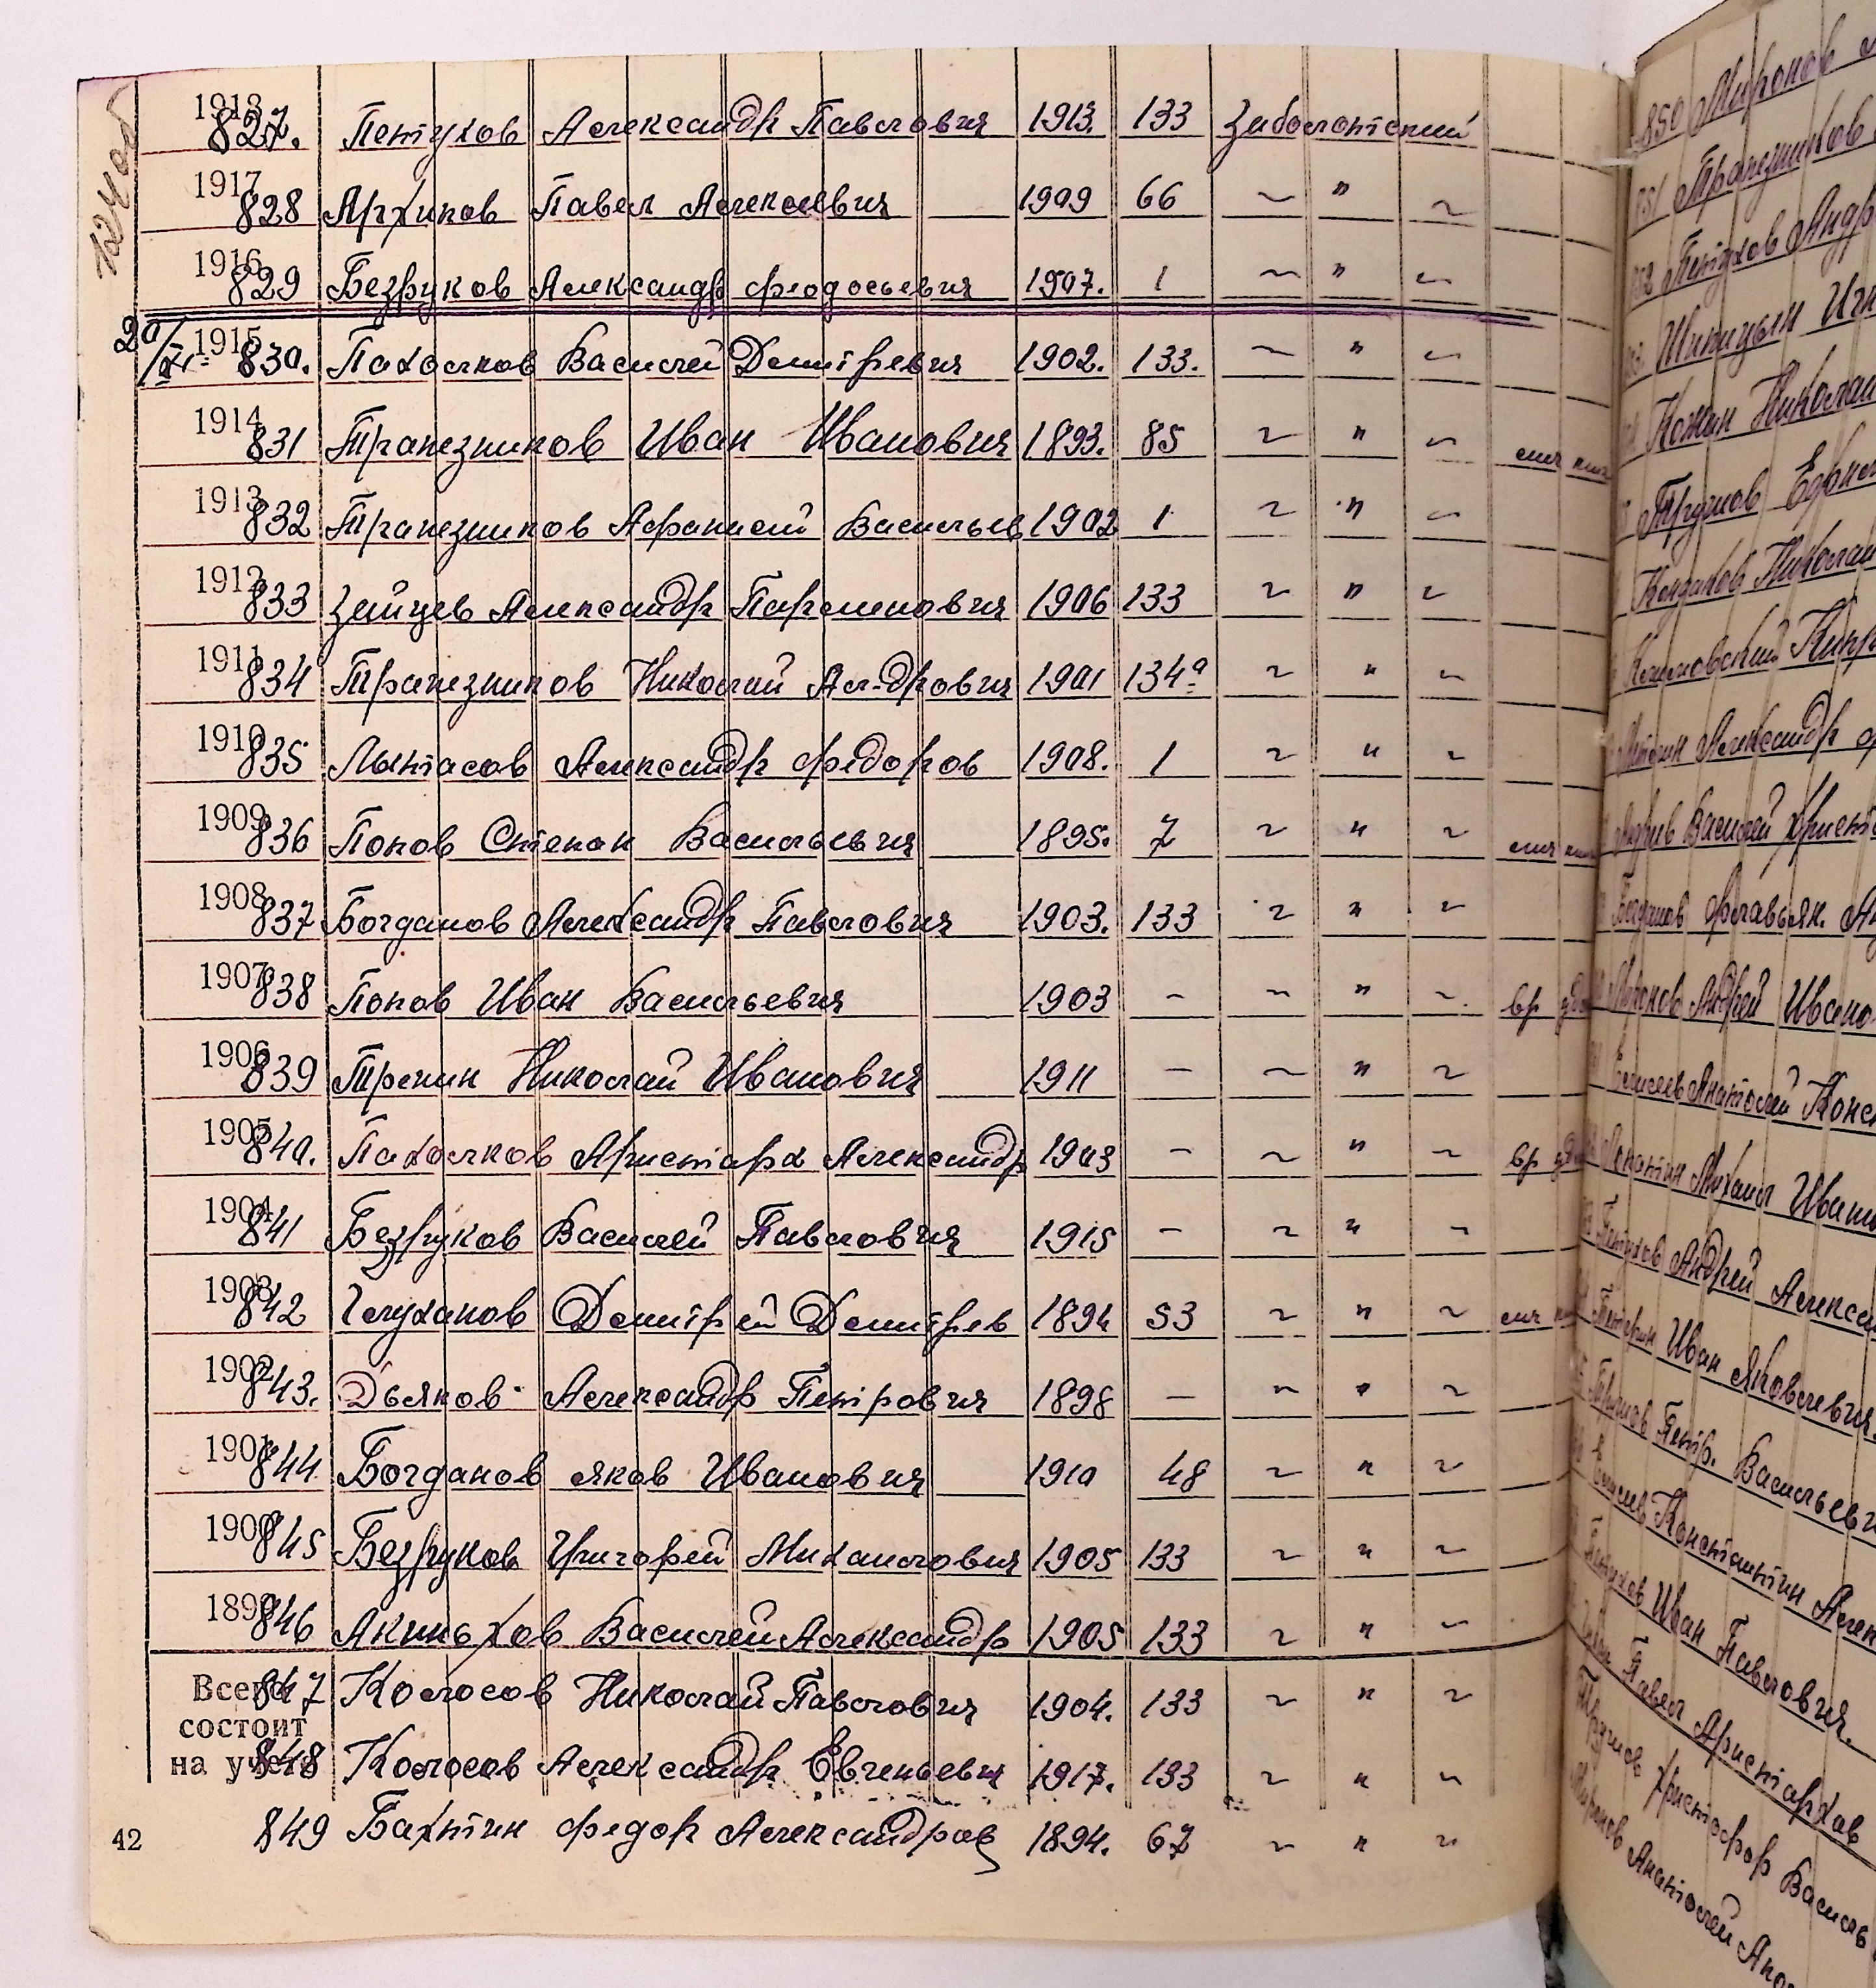 1918 827. Петухов Александр Павлович 1913. 133 Заболотский
1917 828 Архипов Павел Алексеевич 1909 66 ~ " ~
1916 829 Безруков Александр Феодосьевич 1907. 1 ~ " ~
1915 830. Пахолков Василей Дмитревич 1902. 133. ~ " ~
1914 831 Трапезников Иван Иванович 1893. 85 ~ " ~
1913 832 Трапезников Афанасий Васильев 1902 1 ~ " ~
1912 833 Зайцев Александр Парменович 1906 133 ~ " ~
1911 834 Трапезников Николай Ал-дрович 1901 134а ~ " ~
1910 835 Лынтасов Александр Федоров 1908. 1 ~ " ~
1909 836 Попов Степан Васильевич 1895. 7 ~ " ~
1908 837 Богданов Александр Павлович 1903. 133 ~ " ~
1907 838 Попов Иван Васильевич 1903 - ~ " ~ вр
1906 839 Трекин Николай Иванович 1911 - ~ " ~
1905 840. Пахолков Аристарх Александр 1903 - ~ " ~ вр
1904 841 Безруков Василей Павлович 1915 - ~ " ~
1903 842 Глуханов Дмитрей Дмитрев 1894 53 ~ " ~
1902 843. Дьяков Александр Петрович 1898 - ~ " ~
1901 844 Богданов Яков Иванович 1910 48 ~ " ~
1900 845 Безруков Григорей Михаилович 1905 133 ~ " ~
1899 846 Акиньхов Василей Александр 1905 133 ~ " ~
Всего 847 Колосов Николай Павлович 1904. 133 ~ " ~
состоит
на учете 848 Колосов Александр Евгеньевич 1917. 133 ~ " ~
42 849 Бахтин Федор Александров 1894. 67 ~ " ~
850 Миронов
851 Трапезников
852 Петухов Андр
Шипицын Игн
Кожин Николай
Трушов Ефр
Кондаков Николай
Александр
Василей Христ
Богданов Флавьян. Ан
Миронов Андрей Ивано
Анатолей Конс
Лопатин Михаил Иван
Петухов Андрей Алексе
Иван Яковлевич
Петр. Васильевич
Константин Алек
Петухов Иван Павлович
Павел Аристархов
Христофор Васильев
Миронов Анатолей Апол